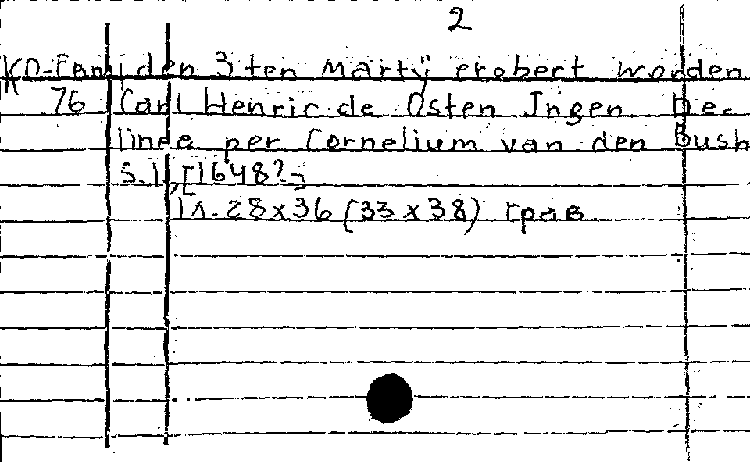 2
den 3ten Martÿ erobert worden
76 Carl Henric de Osten Ingen. De-
linea per Cornelium van den Bush
S.l., [1648?]
1 л. 28x36 (33x38) грав